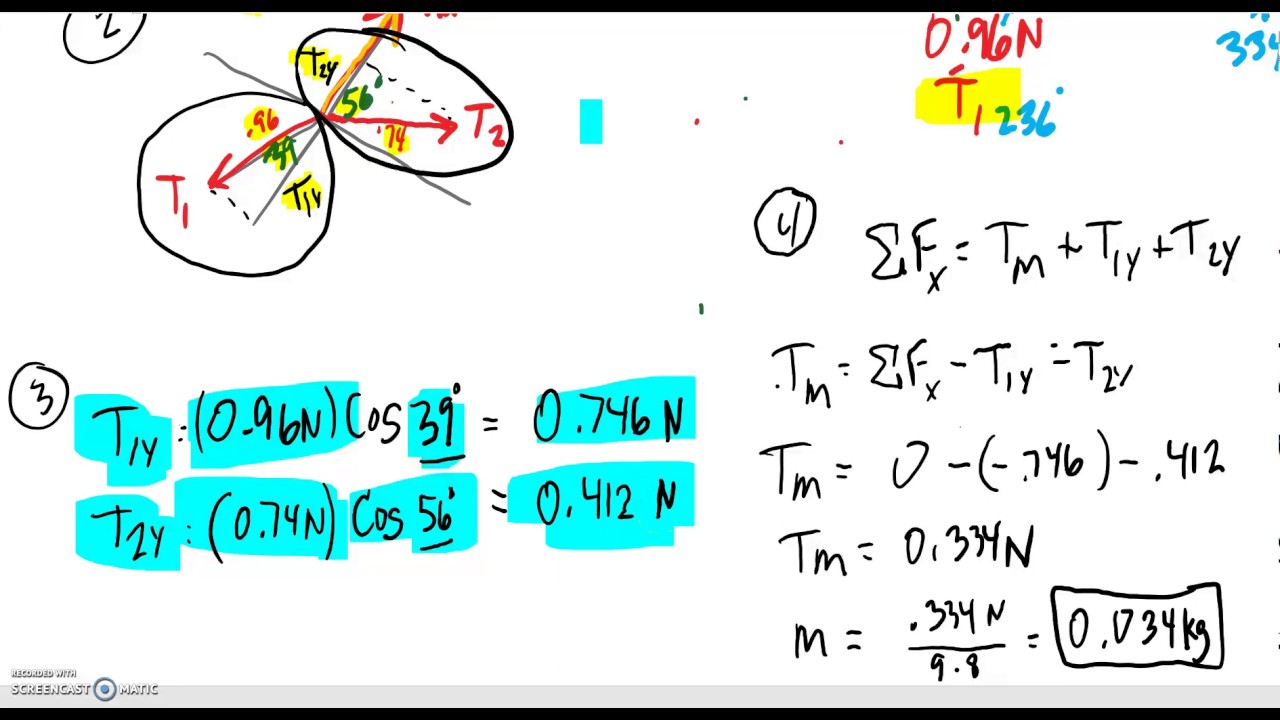 2
T2y
56°
.96
.74
T2
39
T1
T1y
0.96N
T1 236°
334
4
ΣFx = Tm + T1y + T2y
Tm = ΣFx - T1y - T2y
Tm = 0 - (-.746) - .412
Tm = 0.334N
m = .334N / 9.8 = 0.034kg
3
T1y : (0.96N) Cos 39° = 0.746 N
T2y : (0.74N) Cos 56° = 0.412 N
RECORDED WITH
SCREENCAST MATIC